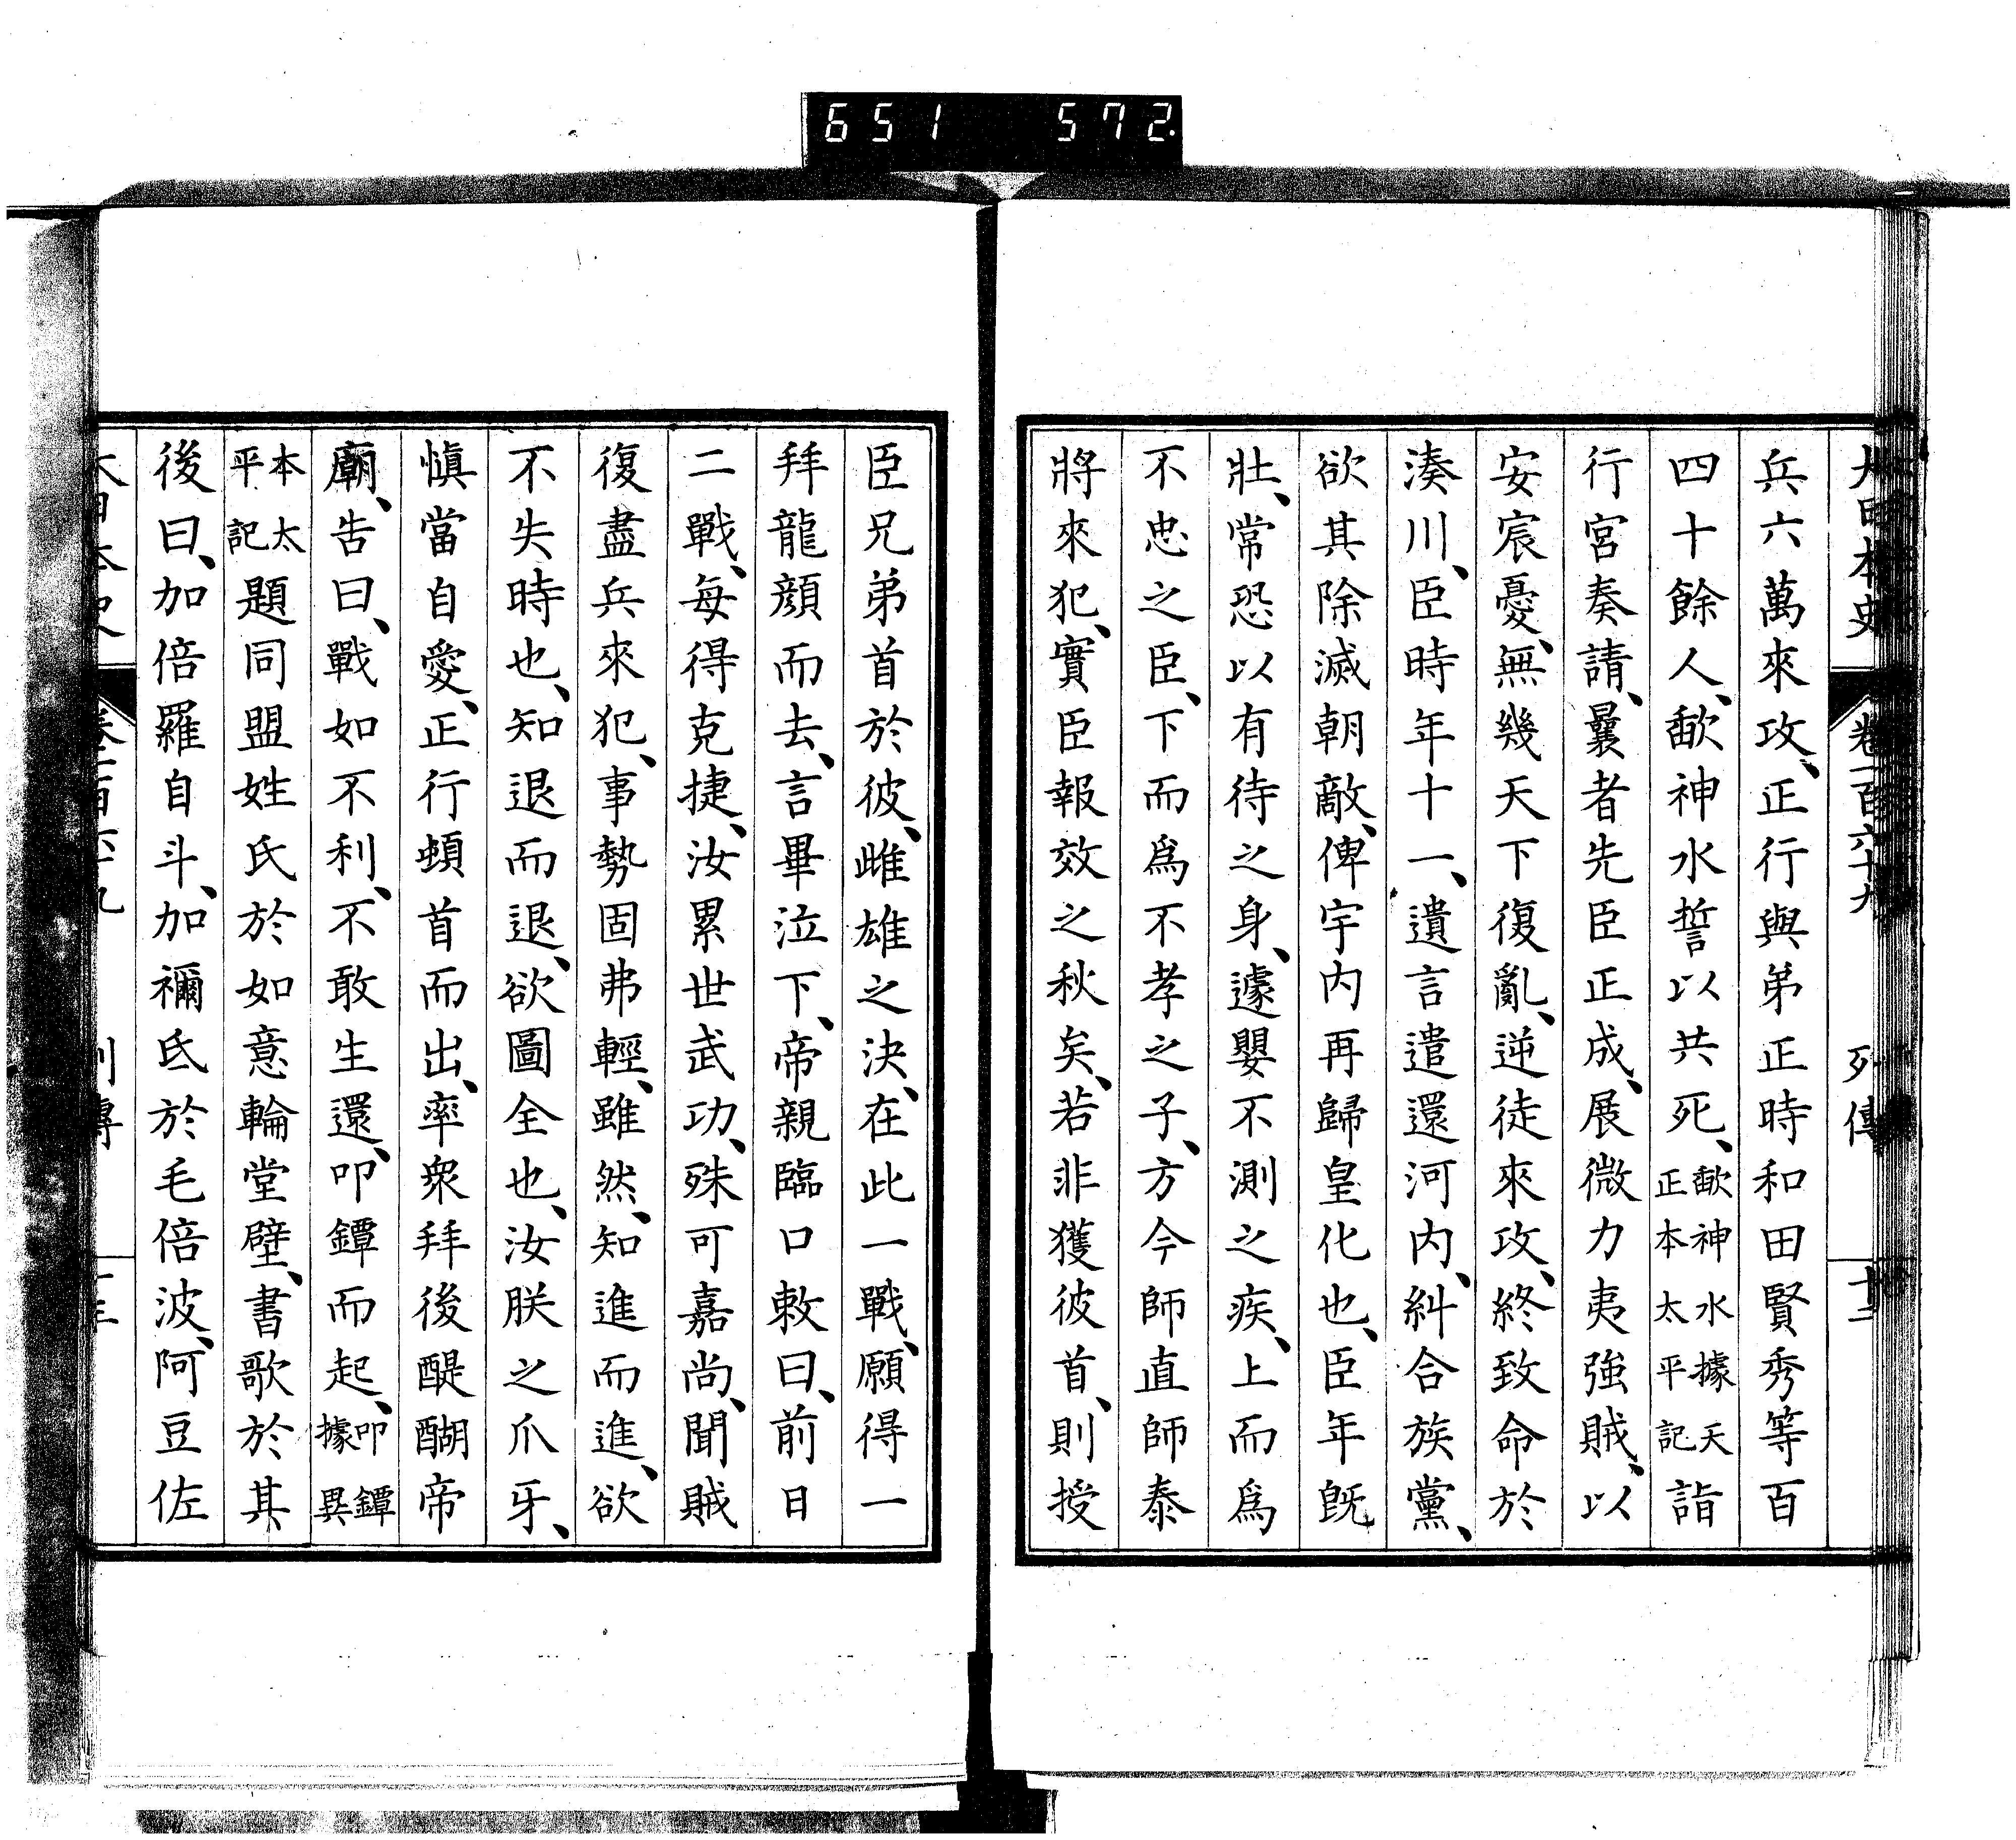 651 572.
大日本史 卷一百六十九 列傳 十二
兵六萬來攻、正行與弟正時和田賢秀等百
四十餘人、歃神水誓以共死、歃神水據天正本太平記詣
行宮奏請、曩者先臣正成、展微力夷強賊、以
安宸憂、無幾天下復亂、逆徒來攻、終致命於
湊川、臣時年十一、遺言遣還河内、糾合族黨、
欲其除滅朝敵、俾宇内再歸皇化也、臣年既
壯、常恐以有待之身、遽嬰不測之疾、上而爲
不忠之臣、下而爲不孝之子、方今師直師泰
將來犯、實臣報效之秋矣、若非獲彼首、則授
臣兄弟首於彼、雌雄之決、在此一戰、願得一
拜龍顏而去、言畢泣下、帝親臨口敕曰、前日
二戰、每得克捷、汝累世武功、殊可嘉尚、聞賊
復盡兵來犯、事勢固弗輕、雖然、知進而進、欲
不失時也、知退而退、欲圖全也、汝朕之爪牙、
慎當自愛、正行頓首而出、率衆拜後醍醐帝
廟、告曰、戰如不利、不敢生還、叩鐔而起、叩鐔據異
本太平記題同盟姓氏於如意輪堂壁、書歌於其
後曰、加倍羅自斗、加禰氐於毛倍波、阿豆佐
列傳